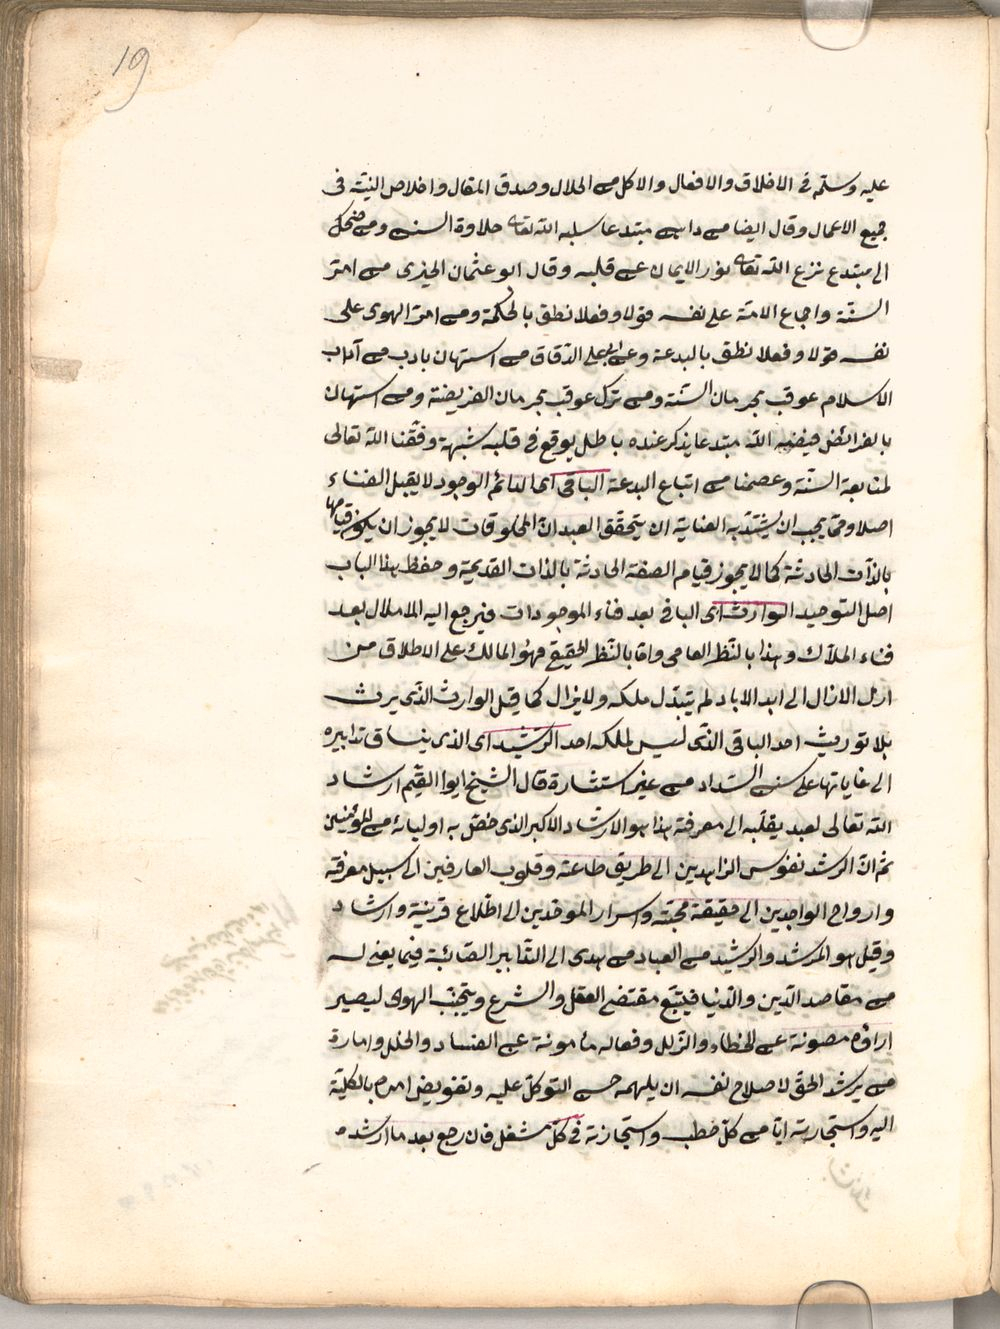 19
عليه وسلّم في الاخلاق والافعال والاكل من الحلال وصدق المقال واخلاص النيّة في
جميع الاعمال وقال ايضا من داهن مبتدعا سلبه الله تعالى حلاوة السنن ومن ضحك
الى مبتدع نزع الله تعالى نور الايمان عن قلبه وقال ابو عثمان الحيزى من امرّ
السنّة واجماع الامّة على نفسه قولا وفعلا نطق بالحكمة ومن امرّ الهوى على
نفسه قولا وفعلا نطق بالبدعة وعن ابى على الدّقاق من استهان بادب من آداب
الاسلام عوقب بحرمان السّنّة ومن ترك عوقب بحرمان الفريضة ومن استهان
بالفرائض قيضه الله مبتدعا يذكر عنده باطل يوقع في قلبه شبهة وفقنا الله تعالى
لمتابعة السنّة وعصمنا من اتباع البدعة الباقى اى الدائم الوجود لا يقبل الفناء
اصلا وممّا يجب ان يشتدّ به العناية ان يتحقّق العبد انّ المخلوقات لا يجوز ان يكون قيامها
بالذّات الحادثة كما لا يجوز قيام الصفة الحادثة بالذات القديمة وحفظ هذا الباب
اصل التوحيد الوارث اى الباقى بعد فناء الموجودات فيرجع اليه الاملاك بعد
فناء الملّاك وهذا بالنّظر العامى وامّا بالنّظر الحقيقى فهو المالك على الاطلاق من
ازل الازال الى ابد الاباد لم يتبدّل ملكه ولا يزال كما قيل الوارث الّذى يرث
بلا توريث احد الباقى الذّى ليس لملكه احد الرّشيد اى الذى ينساق تدابيره
الى غاياتها على سنن السّداد من غير استشارة قال الشيخ ابو القيّم ارشاد
الله تعالى لعبد يقلّبه الى معرفة هذا هو الارشاد الاكبر الذى خصّ به اوليائه من المؤمنين
ثم انّ الرشد نفوس الزاهدين الى طريق طاعته وقلوب العارفين الى سبيل معرفة
وارواح الواجدين الى حقيقة محبّته واسرار الموحّدين الى اطّلاع قرينة وارشاد
وقيل هو المرشد والرشيد من العباد من هدى الى التّدابير الصّائبة فيما يعنى له
من مقاصد الدّين والدّنيا فيتّبع مقتضى العقل والشرع ويتجنّب الهوى ليصير
اراؤه مصونة عن الخطاء والزّلل وفعاله مأمونة عن الفساد والخلل وامارة
من يرشد الحقّ لاصلاح نفسه ان يلهمه حسن التّوكّل عليه وتفويض امره بالكليّة
اليه واستجارته ايّاه من كلّ خطب واستجازته في كلّ شغل فان رجع بعد ما ارشده